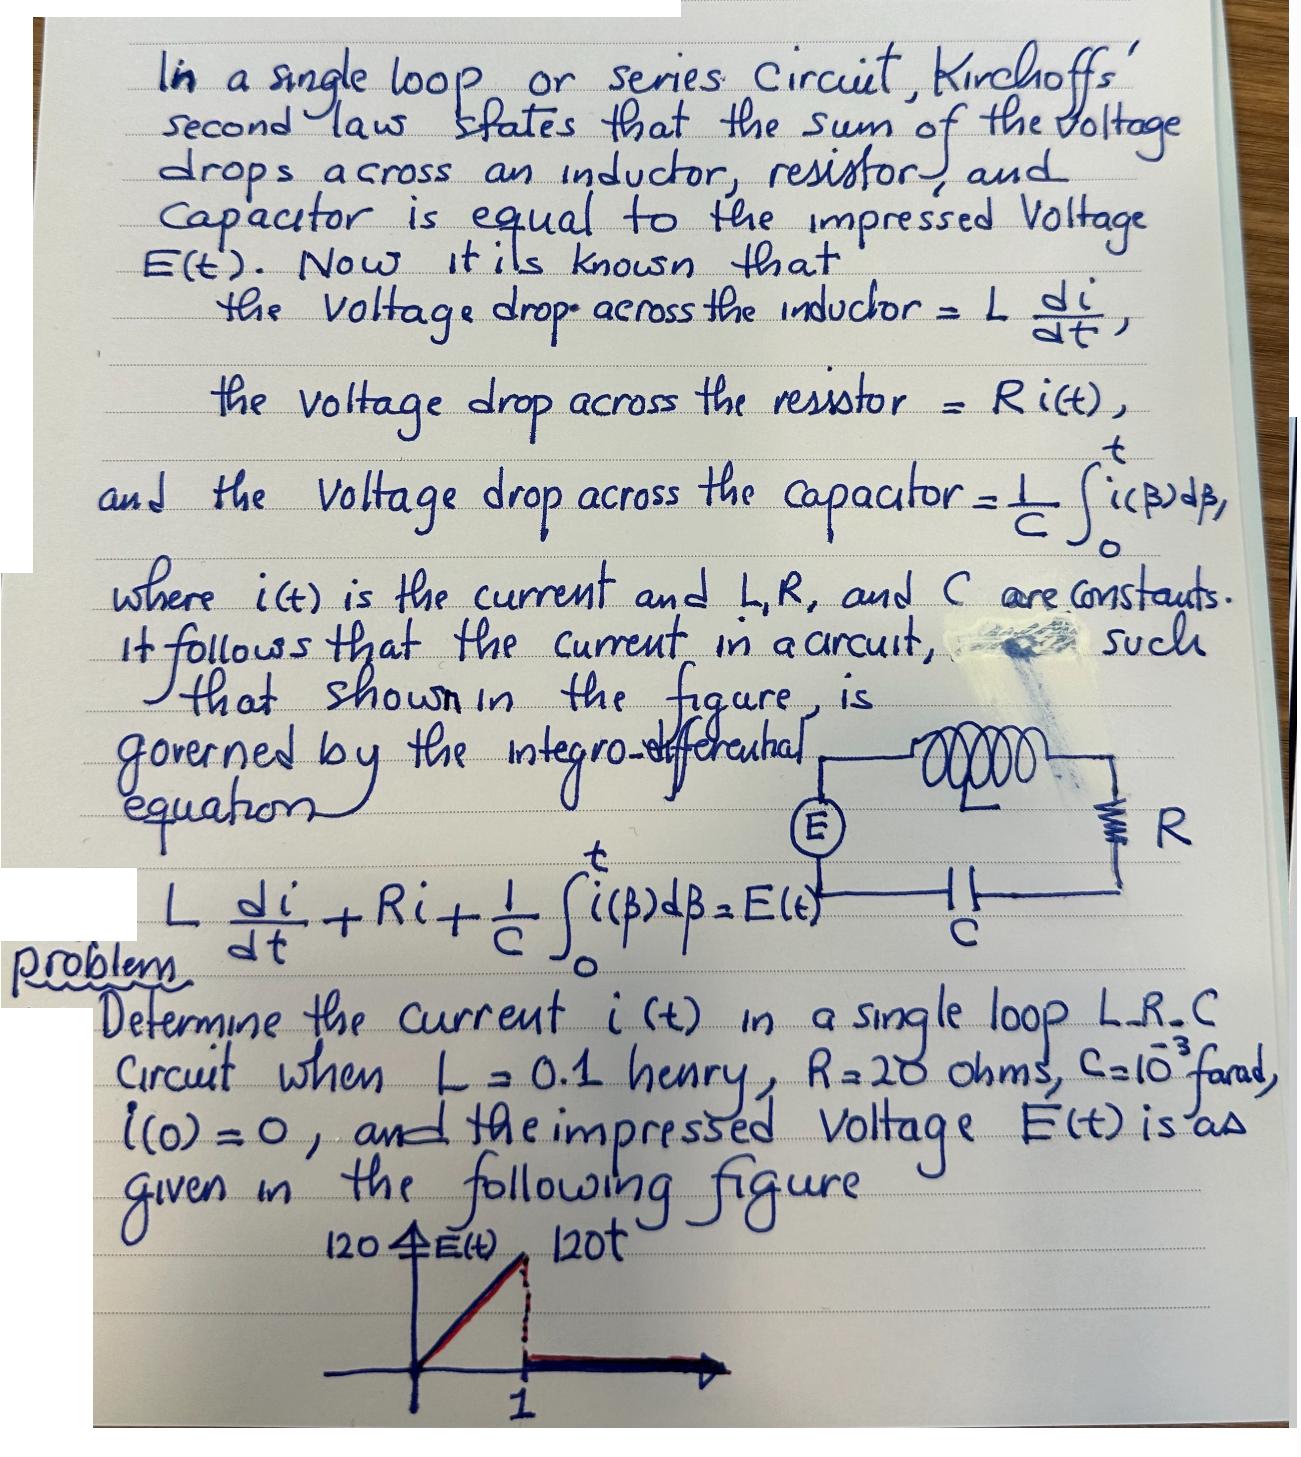 In a single loop or series Circuit, Kirchoffs'
second law states that the sum of the voltage
drops across an inductor, resistor, and
Capacitor is equal to the impressed Voltage
E(t). Now it is known that
the Voltage drop across the inductor = L di/dt,
the voltage drop across the resistor = Ri(t),
and the Voltage drop across the capacitor = 1/C ∫₀ᵗ i(β)dβ,
where i(t) is the current and L,R, and C are constants.
It follows that the current in a circuit, such
that shown in the figure, is
governed by the integro-differential
equation
L
E
R
C
L di/dt + Ri + 1/C ∫₀ᵗ i(β)dβ = E(t)
problem
Determine the current i(t) in a single loop L-R-C
Circuit when L = 0.1 henry, R = 20 ohms, C = 10⁻³ farad,
i(0) = 0, and the impressed Voltage E(t) is as
given in the following figure
120 E(t) 120t
1